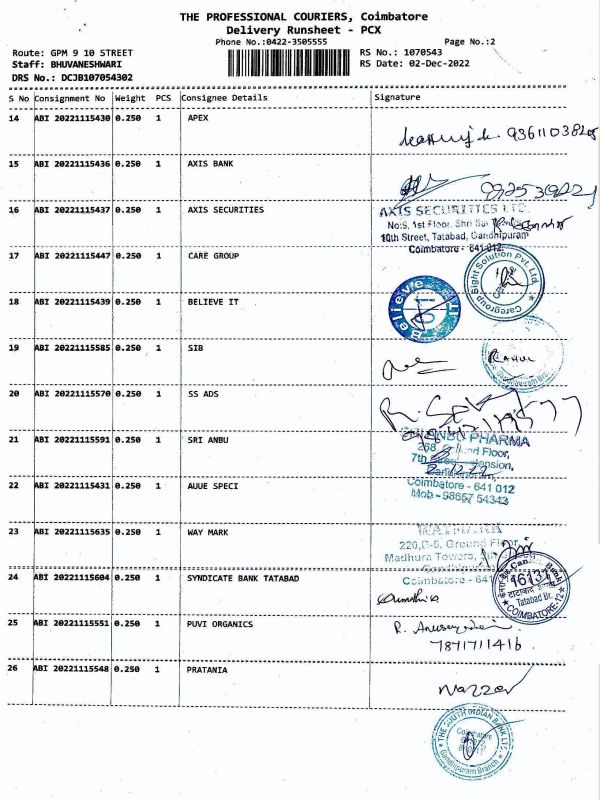 THE PROFESSIONAL COURIERS, Coimbatore
Delivery Runsheet - PCX
Phone No.:0422-3505555 Page No.:2
Route: GPM 9 10 STREET RS No.: 1070543
Staff: BHUVANESHWARI RS Date: 02-Dec-2022
DRS No.: DCJB107054302
S No Consignment No Weight PCS Consignee Details Signature
14 ABI 20221115430 0.250 1 APEX
15 ABI 20221115436 0.250 1 AXIS BANK
16 ABI 20221115437 0.250 1 AXIS SECURITIES
AXIS SECURITIES LTD.
No:9, 1st Floor, Shri Sai
10th Street, Tatabad, Gandhipuram
Coimbatore - 641 012
17 ABI 20221115447 0.250 1 CARE GROUP
Caregroup Sight Solution Pvt. Ltd.
18 ABI 20221115439 0.250 1 BELIEVE IT
Believe IT
19 ABI 20221115585 0.250 1 SIB
RAHUL
Gandhipuram Br.
20 ABI 20221115570 0.250 1 SS ADS
21 ABI 20221115591 0.250 1 SRI ANBU
PHARMA
Floor,
7th
22 ABI 20221115431 0.250 1 AUUE SPECI
Coimbatore - 641 012
Mob - 98657 54343
23 ABI 20221115635 0.250 1 WAY MARK
WAYMARK
220,D-5, Ground Floor,
Madhura Towers,
Coimbatore - 641
24 ABI 20221115604 0.250 1 SYNDICATE BANK TATABAD
16131
Tatabad Br.
COIMBATORE-12
25 ABI 20221115551 0.250 1 PUVI ORGANICS
7871711416
26 ABI 20221115548 0.250 1 PRATANIA
Nazzer
THE SOUTH INDIAN BANK LTD.
Coimbatore
Gandhipuram Branch